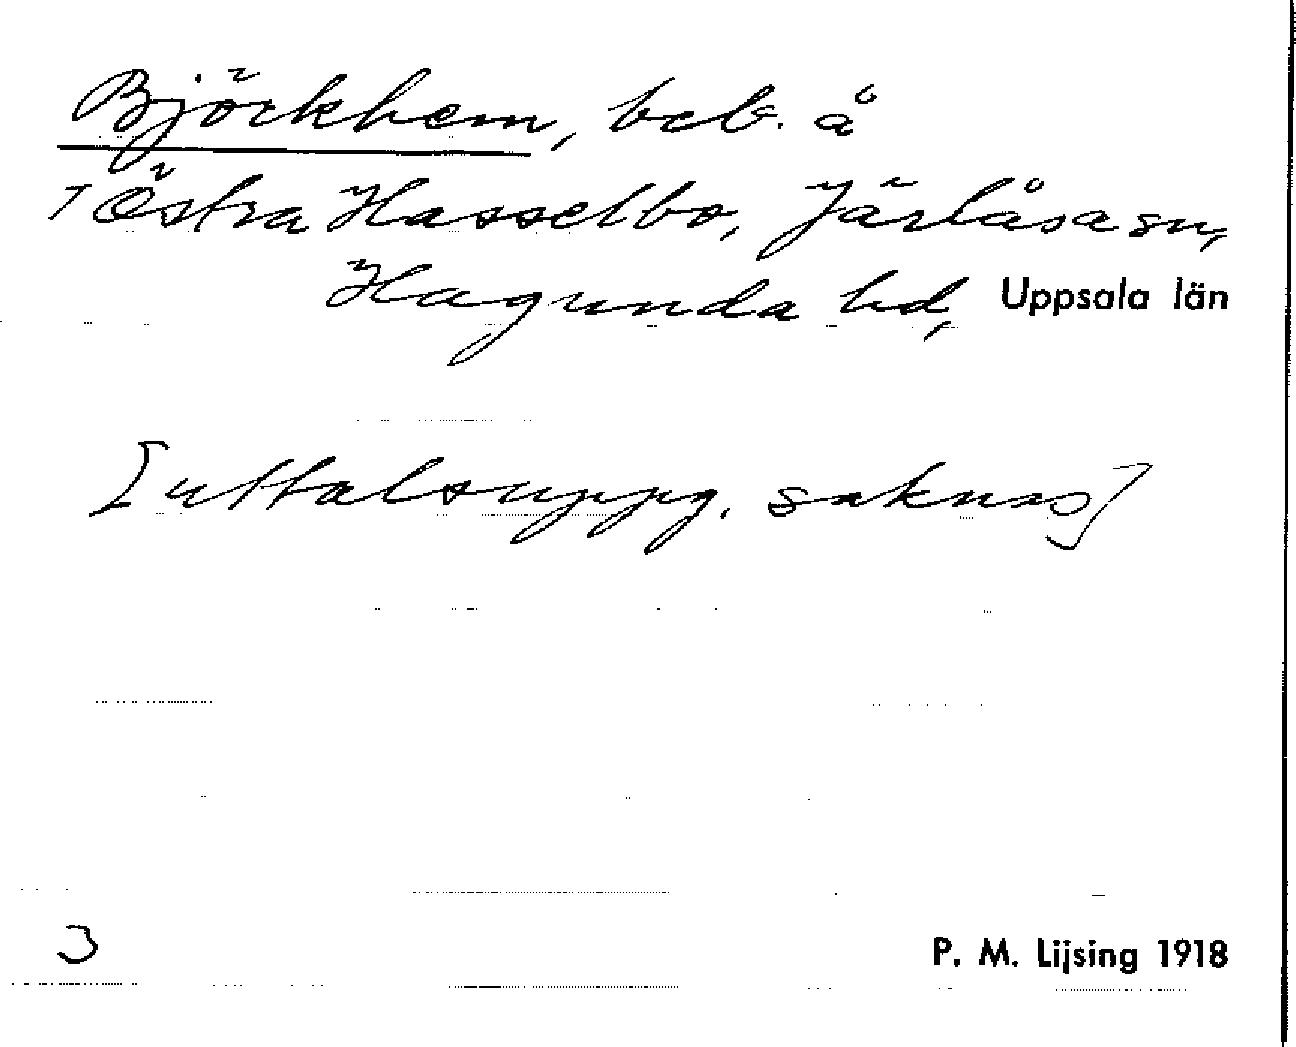 Björkhem, beb. å
Östra Hasselbo, Järlåsa sn,
Hagunda hd, Uppsala län
[uttalsuppg. saknas]
3
P. M. Lijsing 1918